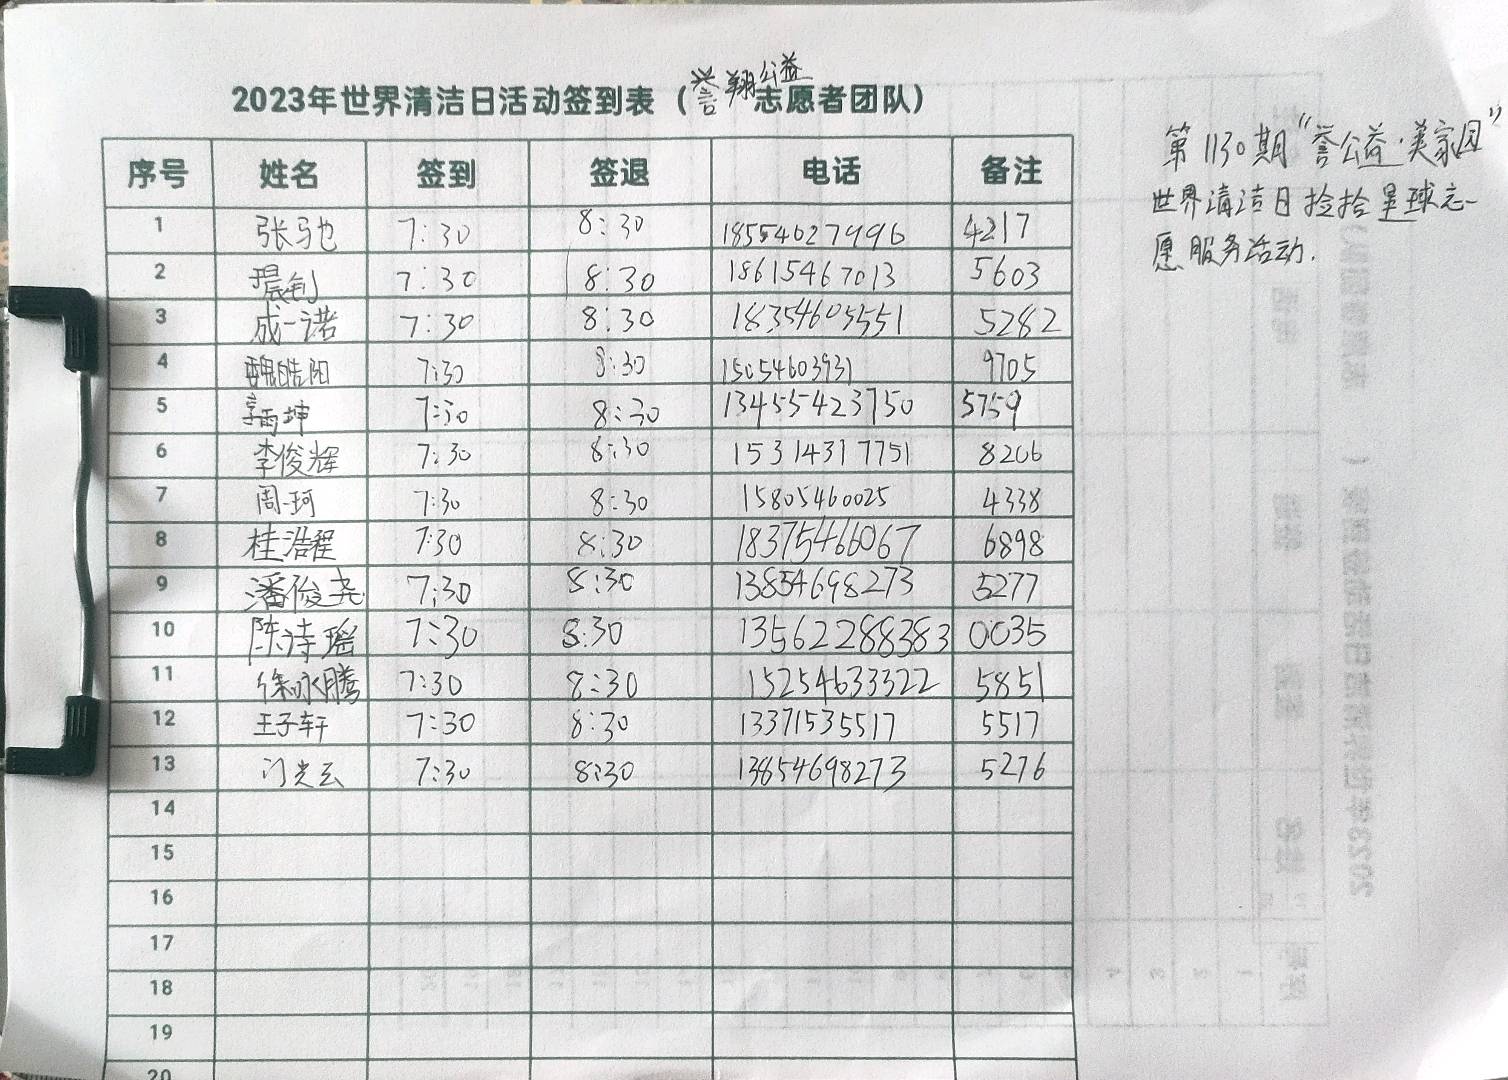 2023年世界清洁日活动签到表（誉翔公益志愿者团队）
第1130期“誉公益·美家园”
世界清洁日捡拾星球志
愿服务活动.
序号 姓名 签到 签退 电话 备注
1 张驰 7:30 8:30 18554627996 4217
2 8:30 7:30 18615467013 5603
3 成一诺 7:30 8:30 18354605551 5282
4 魏皓阳 7:30 8:30 15054603931 9705
5 7:30 8:30 13455423750 5759
6 李俊辉 7:30 8:30 15314317751 8206
7 周一珂 7:30 8:30 15805460025 4338
8 桂浩程 7:30 8:30 18375466067 6898
9 潘俊尧 7:30 8:30 13854698273 5277
10 陈诗瑶 7:30 8:30 13562288383 0035
11 徐咏腾 7:30 8:30 15254633322 5851
12 王子轩 7:30 8:30 13371535517 5517
13 门光云 7:30 8:30 13854698273 5276
14
15
16
17
18
19
20